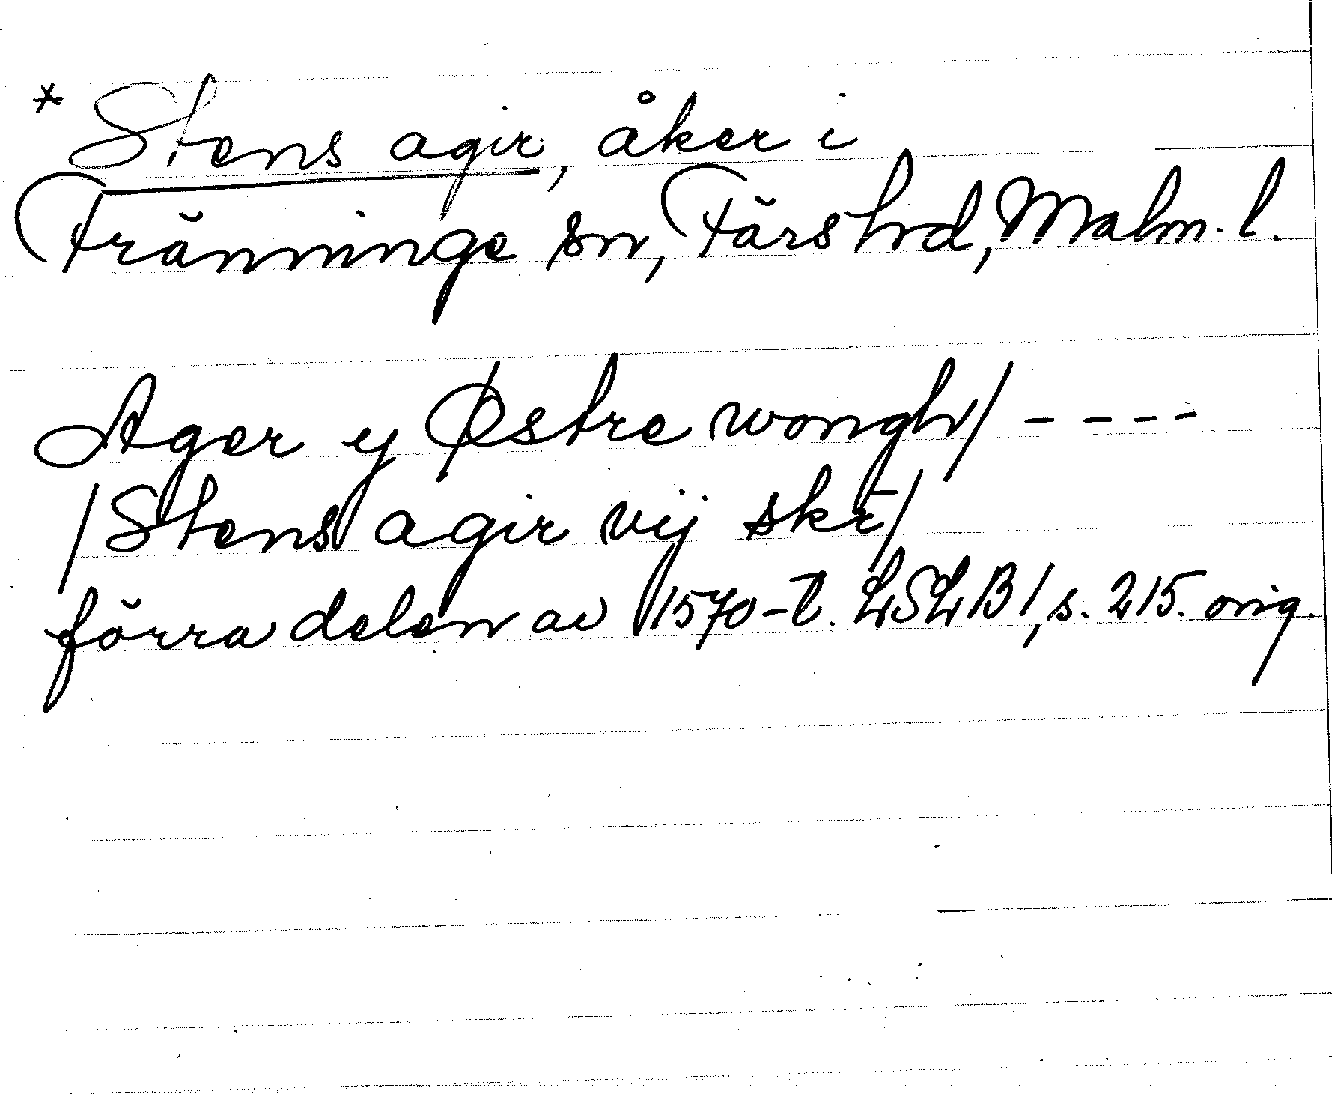 * Stens agir, åker i
Fränninge sn, Färs hrd, Malm. l.
Ager y Østre wongh/ - - - -
/Stens agir vij skr̄/
förra delen av 1570-t. LSLB 1, s. 215. orig.